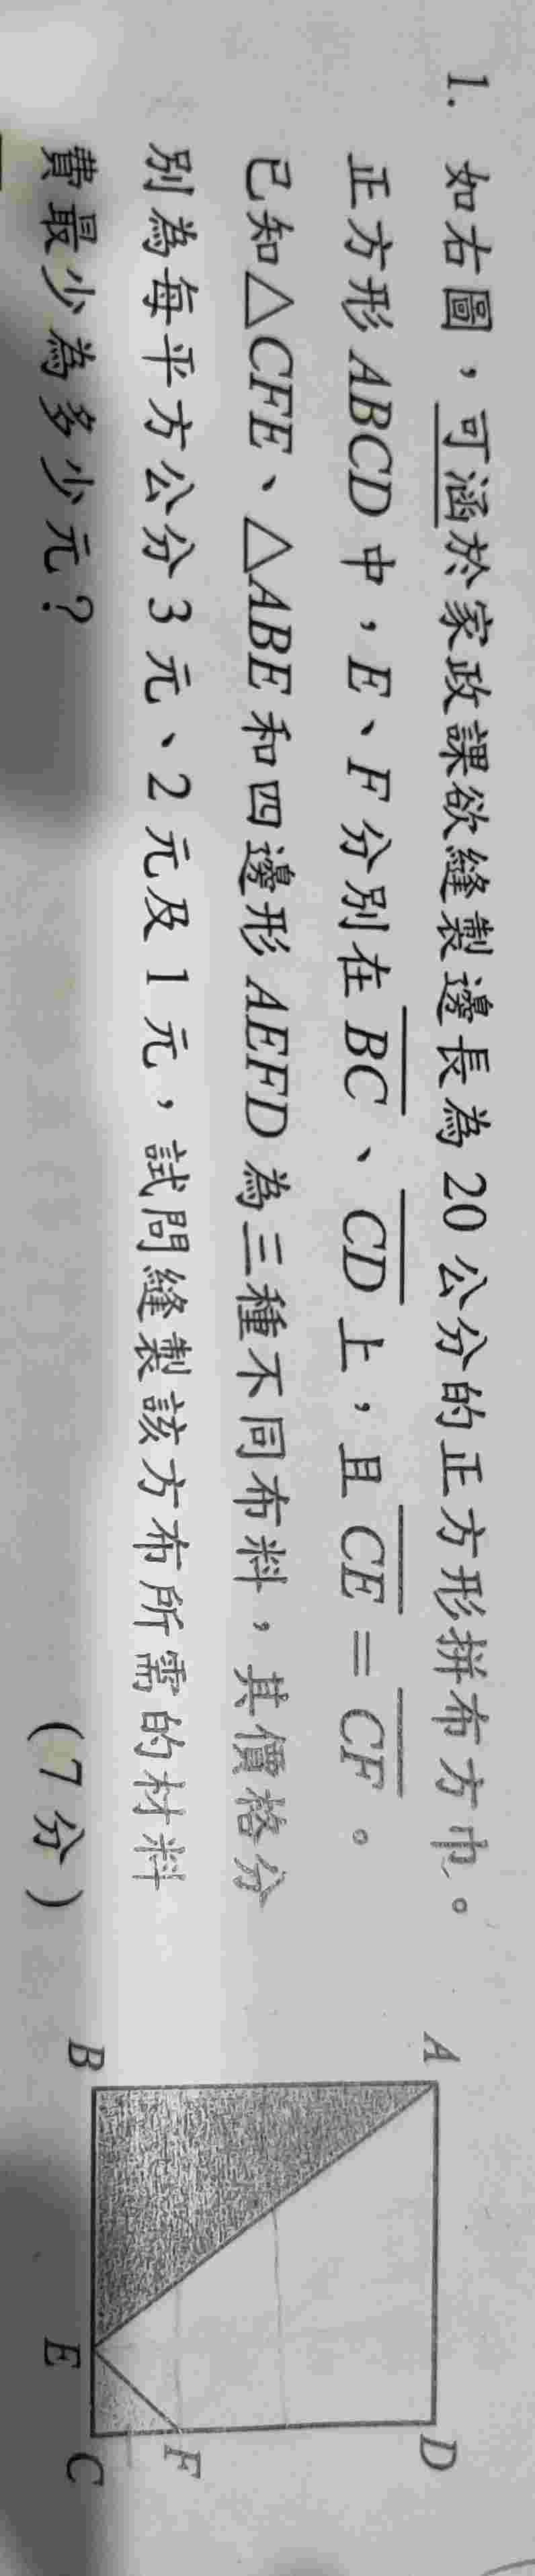 1. 如右圖，可涵於家政課欲縫製邊長為 20 公分的正方形拼布方巾。
正方形 ABCD 中，E、F 分別在 BC、CD 上，且 CE = CF。
已知△CFE、△ABE 和四邊形 AEFD 為三種不同布料，其價格分
別為每平方公分 3 元、2 元及 1 元，試問縫製該方布所需的材料
費最少為多少元？
(7 分)
A
D
B
E
C
F